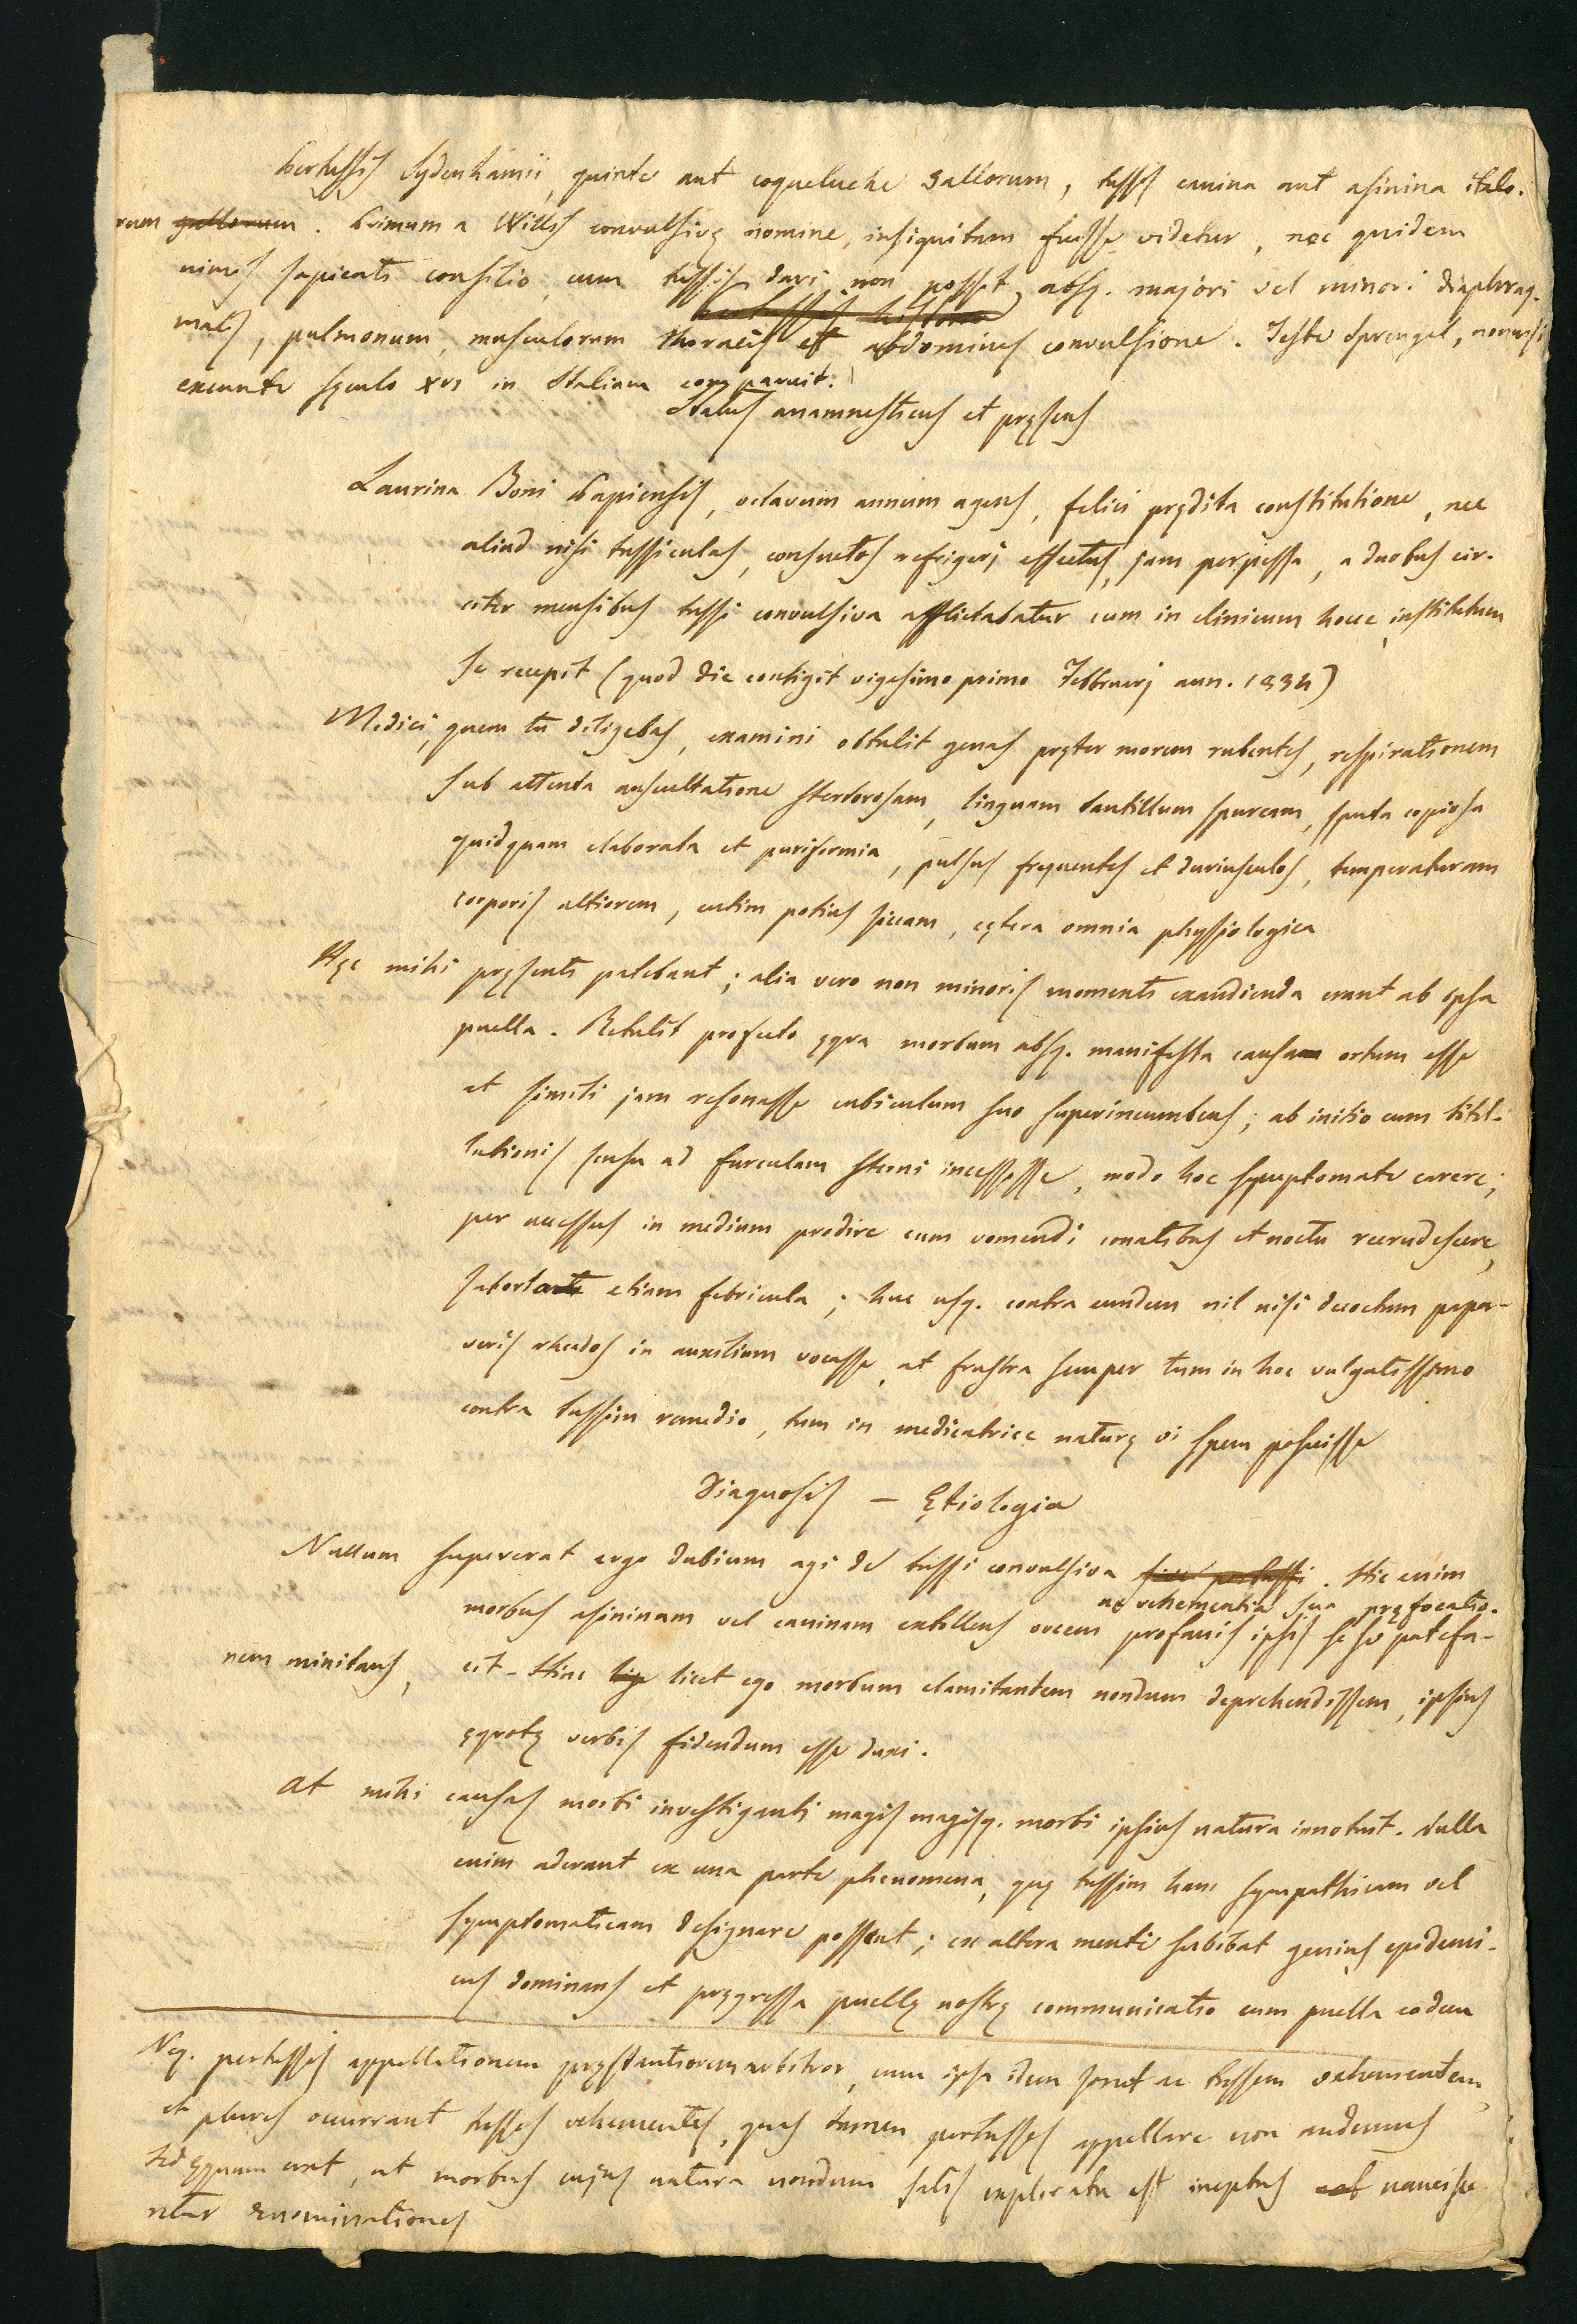 Pertussis Sydenhamii, quinte aut coqueluche Gallorum, tussis canina aut asinina italo-
rum gallorum. Primum a Willis convulsivę nomine, insignitum fuisse videtur, nec quidem
nimis sapienti consilio, cum tussis dari non posset absq. majori vel minori diaphrag-
matis, pulmonum, musculorum thoracis et abdominis convulsione. Teste Sprengel, nonnisi
exeunte sęculo XVI in Italiam comparuit.
Status anamnesticus et pręsens
Laurina Boni Papiensis, octavum annum agens, felici prędita constitutione, nec
aliud nisi tussiculas, consuetos refrigerj effectus, jam perpessa, a duobus cir-
citer mensibus tussi convulsiva afflictabatur cum in clinicum hocce institutum
se recepit (quod die contigit vigesimo primo Februarj ann. 1834)
Medici, quem tu diligebas, examini obtulit genas pręter morem rubentes, respirationem
sub attenta auscultatione stertorosam, linguam tantillum spurcam, sputa copiosa
quidquam elaborata et puriformia, pulsus frequentes et duriusculos, temperaturam
corporis altiorem, cutim potius siccam, cętera omnia physiologica
Hęc mihi pręsenti patebant; alia vero non minoris momenti exaudienda erant ab ipsa
puella. Retulit profecto ęgra morbum absq. manifesta causa ortum esse
et simili jam resonasse cubiculum suo superincumbens; ab initio cum titil-
lationis sensu ad furculam sterni incessisse, modo hoc symptomate carere;
per accessus in medium prodire cum vomendi conatibus et noctu recrudescere,
suborta etiam febricula; huc usq. contra eundem nil nisi decoctum papa-
veris rhœdos in auxilium vocasse, at frustra semper tum in hoc vulgatissimo
contra tussim remedio, tum in medicatrice naturę vi spem posuisse
Diagnosis – Ętiologia
Nullum supererat ergo dubium agi de tussi convulsiva sive pertussi. Hic enim
ac vehementia sua pręfocatio-
morbus asininam vel caninam extollens vocem profanis ipsis sese patefa-
nem minitans, cit. Hinc licet ego morbum clamitantem nondum deprehendissem, ipsius
ęgrotę verbis fidendum esse duxi.
At mihi causas morbi investiganti magis magisq. morbi ipsius natura innotuit. Nulla
enim aderant ex una parte phenomena, quę tussim hanc sympathicam vel
symptomaticam designare possent; ex altera menti subibat genius epidemi-
cus dominans et prægressa puellę nostrę communicatio cum puella eodem
Neq. pertussis appellationem pręstantiorem arbitror, cum ipsa idem sonet ac tussem vehementem,
et plures occurrant tusses vehementes, quas tamen pertusses appellare non audemus
sed ęquum erat, ut morbus cujus natura nondum satis explorata est ineptas nancisce
retur denominationes